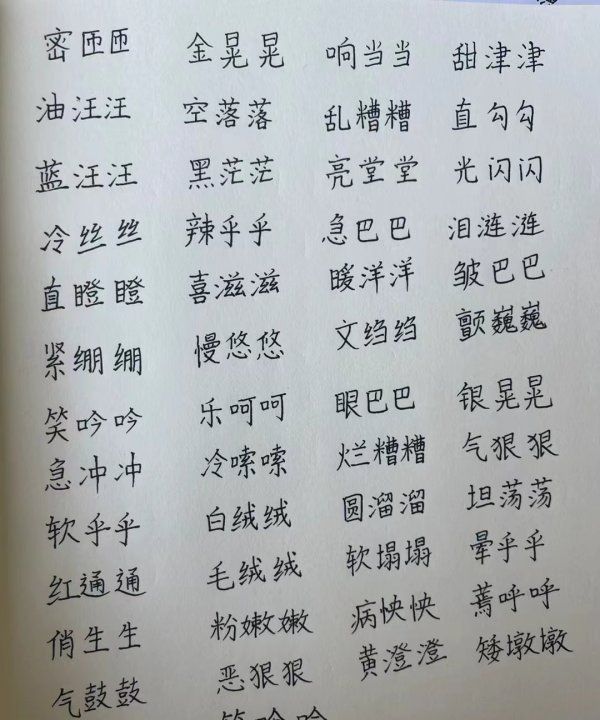 密匝匝 金晃晃 响当当 甜津津
油汪汪 空落落 乱糟糟 直勾勾
蓝汪汪 黑茫茫 亮堂堂 光闪闪
冷丝丝 辣乎乎 急巴巴 泪涟涟
直瞪瞪 喜滋滋 暖洋洋 皱巴巴
紧绷绷 慢悠悠 文绉绉 颤巍巍
笑吟吟 乐呵呵 眼巴巴 银晃晃
急冲冲 冷嗦嗦 烂糟糟 气狠狠
软乎乎 白绒绒 圆溜溜 坦荡荡
红通通 毛绒绒 软塌塌 晕乎乎
俏生生 粉嫩嫩 病怏怏 蔫呼呼
气鼓鼓 恶狠狠 黄澄澄 矮墩墩